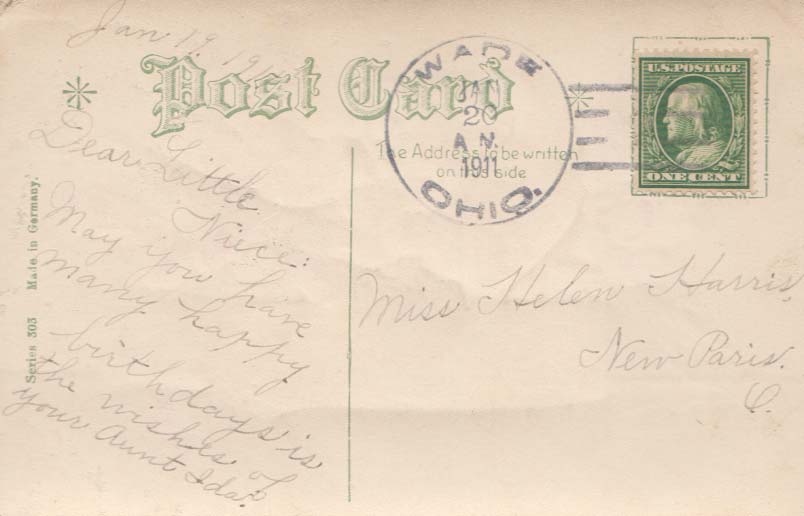 Jan 19, 191
Post Card
WADE
JAN
20
A N.
1911
OHIO.
U.S. POSTAGE
ONE CENT
The Address to be written
on this side
Dear Little
Niece:
May you have
many happy
birthdays is
the wishes of
your Aunt Ida.
Miss Helen Harris,
New Paris.
O.
Series 303 Made in Germany.